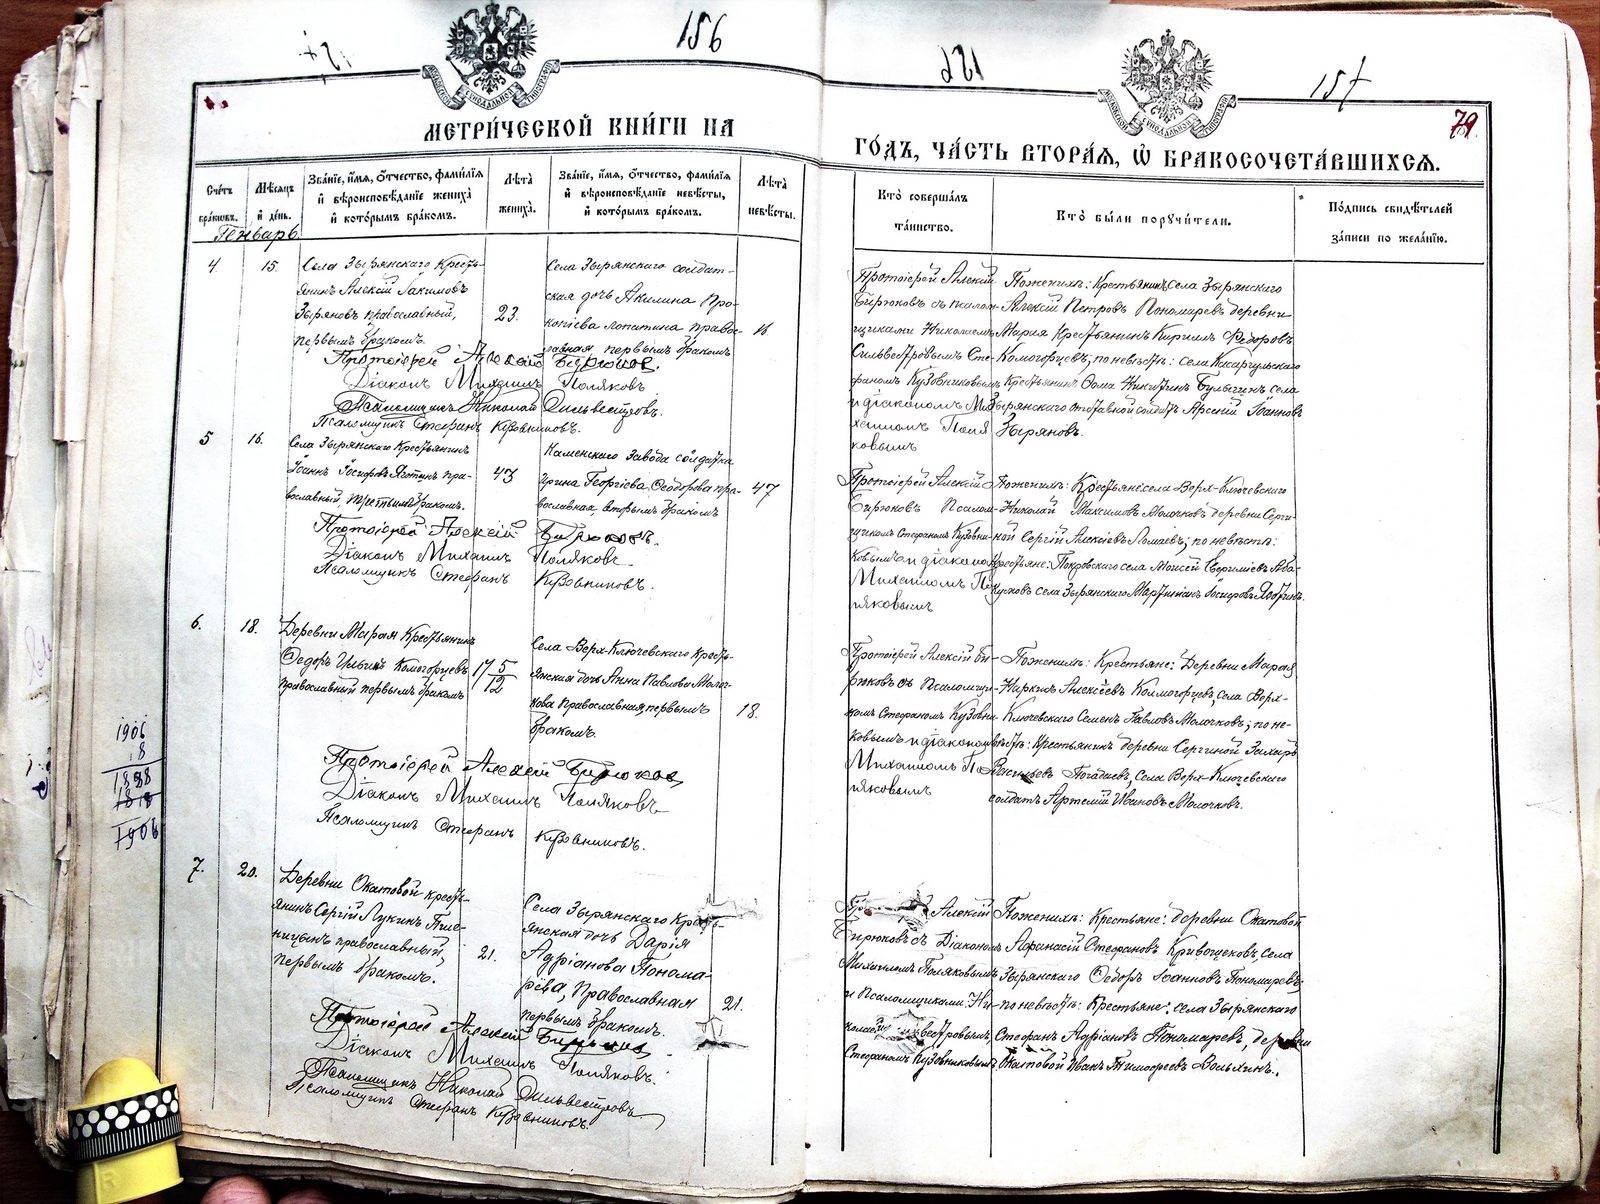 156
157
79
МЕТРИ́ЧЕСКОЙ КНИ́ГИ НА
ГО́ДЪ, ЧА́СТЬ ВТОРА́Я, Ѡ БРАКОСОЧЕТА́ВШИХСЯ.
Сче́тъ бра́ковъ.
Мѣ́сяцъ и де́нь.
Зва́нїе, и́мя, о́тчество, фами́лїя
и́ вѣроисповѣ́данїе жениха̀
и́ кото́рымъ бра́комъ.
Лѣ́та жениха̀.
Зва́нїе, и́мя, о́тчество, фами́лїя
и́ вѣроисповѣ́данїе невѣ́сты,
и́ кото́рымъ бра́комъ.
Лѣ́та невѣ́сты.
Кто̀ соверша́лъ
та́инство.
Кто̀ бы́ли поручи́тели.
По́дпись свидѣ́телей
за́писи по жела́нїю.
Генварь.
4
15.
Села Зырянскаго Кресть-
янинъ Алексій Іакимовъ
Зыряновъ православный,
первымъ бракомъ.
23.
Села Зырянскаго солдат-
ская дочь Акилина Про-
копіева Лопатина право-
славная первымъ бракомъ
16
Протоіерей Алексій
Бирюковъ съ псалом-
щиками Николаемъ
Сильвестровымъ Сте-
фаномъ Кузовниковымъ
и діакономъ Ми
хаиломъ Поля
ковымъ
По женихѣ: Крестьянинъ села Зырянскаго
Алексій Петровъ Пономаревъ деревни
Марая Крестьянинъ Кириллъ Ѳедоровъ
Комогорцевъ; по невѣстѣ: села
Крестьянинъ Ѳома Никитинъ Булычинъ, села
Зырянскаго отставной солдатъ Арсеній Іоанновъ
Зыряновъ.
Протоіерей Алексій Бирюковъ.
Діаконъ Михаилъ Поляковъ
Псаломщикъ Николай Сильвестровъ.
Псаломщикъ Стефанъ Кузовниковъ.
5
16.
Села Зырянскаго Крестьянинъ
Іоаннъ Іосифовъ пра-
вославный, третьимъ бракомъ.
43
Каменскаго Завода солдатка
Ирина Георгіева Ѳеодорова пра-
вославная, вторымъ бракомъ
47
Протоіерей Алексій
Бирюковъ Псалом-
щикомъ Стефаномъ Кузовни-
ковымъ и діакономъ
Михаиломъ По
ляковымъ
По женихѣ: Крестьяне села Верх-Ключевскаго
Николай Максимовъ Молочковъ деревни Серги-
ной Сергій Алексіевъ; по невѣстѣ:
Крестьяне: Покровскаго села Моисей
села Зырянскаго Іосифовъ
Протоіерей Алексій Бирюковъ.
Діаконъ Михаилъ Поляковъ.
Псаломщикъ Стефанъ Кузовниковъ.
6.
18.
Деревни Марая Крестьянинъ
Ѳедоръ Ильинъ Комогорцевъ
православный первымъ бракомъ
17 5/12
Села Верх-Ключевскаго Кресть-
янская дочь Анна Павлова Молоч-
кова Православная, первымъ
бракомъ.
18.
Протоіерей Алексій Би-
рюковъ съ Псаломщи-
комъ Стефаномъ Кузовни
ковымъ и діакономъ
Михаиломъ По
ляковымъ
По женихѣ: Крестьяне: Деревни Марая
Наркисъ Алексѣевъ Колмогорцевъ, села Верх-
Ключевскаго Семенъ Павловъ Молочковъ; по не-
вѣстѣ: Крестьянинъ деревни Сергиной Захаръ
Васильевъ Погадаевъ, села Верх-Ключевскаго
солдатъ Артемій Ивановъ Молочковъ.
Протоіерей Алексій Бирюковъ
Діаконъ Михаилъ Поляковъ
Псаломщикъ Стефанъ Кузовниковъ.
1906
18
1888
1818
1906
7.
20.
Деревни Окатовой кресть-
янинъ Сергій Лукинъ Пше-
ницынъ православный,
первымъ бракомъ.
21.
Села Зырянскаго Кресть-
янская дочь Дарія
Адріанова Понома-
рева, Православная
первымъ бракомъ.
21.
Алексій
Бирюковъ съ Діакономъ
Михаиломъ Поляковымъ
и Псаломщиками Ни-
Стефаномъ Кузовниковымъ
По женихѣ: Крестьяне: деревни Окатовой
Афанасій Стефановъ Кривощековъ, села
Зырянскаго Ѳедоръ Іоанновъ Пономаревъ;
по невѣстѣ: Крестьяне: села Зырянскаго
Стефанъ Адріановъ Пономаревъ, деревни
Окатовой Иванъ Тимофеевъ Волхинъ.
Протоіерей Алексій Бирюковъ
Діаконъ Михаилъ Поляковъ.
Псаломщикъ Николай Сильвестровъ
Псаломщикъ Стефанъ Кузовниковъ.